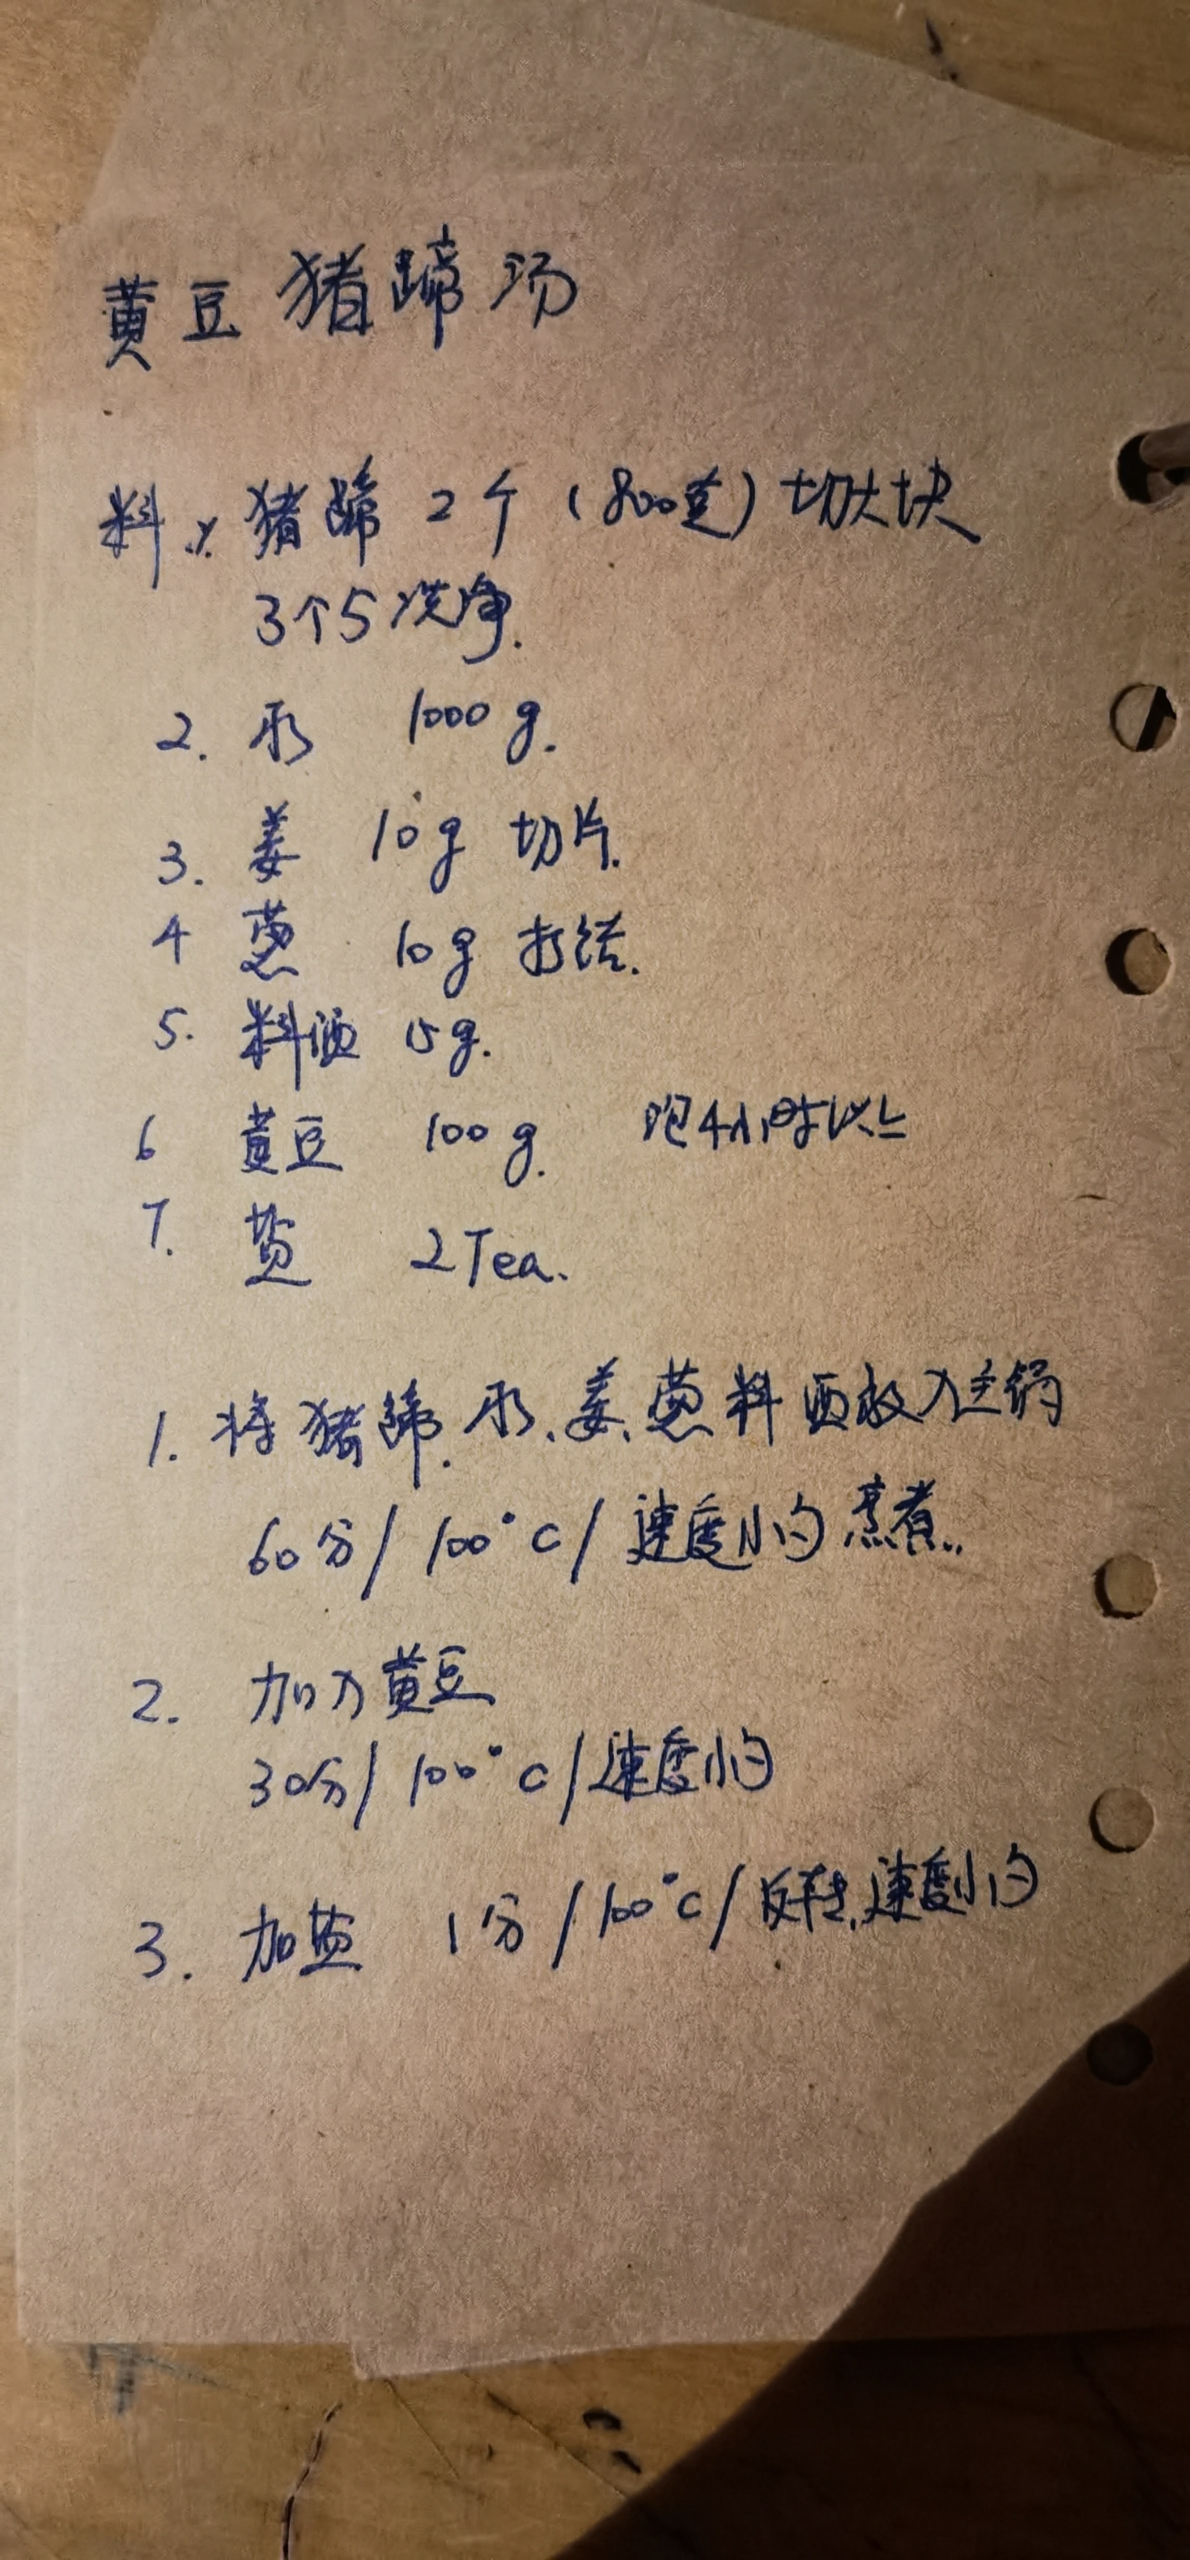 黄豆猪蹄汤
料 1. 猪蹄 2个 (800克) 切大块
洗净.
2. 水 1000g.
3. 姜 10g 切片.
4 葱 10g 打结.
5. 料酒 15g.
6 黄豆 100g. 泡4小时以上
7. 盐 2Tea.
1. 将猪蹄.水、姜、葱料酒放入主锅
60分/100°C/速度小勺 蒸煮..
2. 加入黄豆
30分/100°C/速度小勺
3. 加盐 1分/100°C/反转,速度小勺